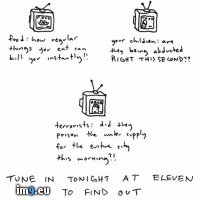 food: how regular
things you eat can
kill you instantly!!
your children: are
they being abducted
RIGHT THIS SECOND??
terrorists: did they
poison the water supply
for the entire city
this morning?!
TUNE IN TONIGHT AT ELEVEN
TO FIND OUT
img.eu